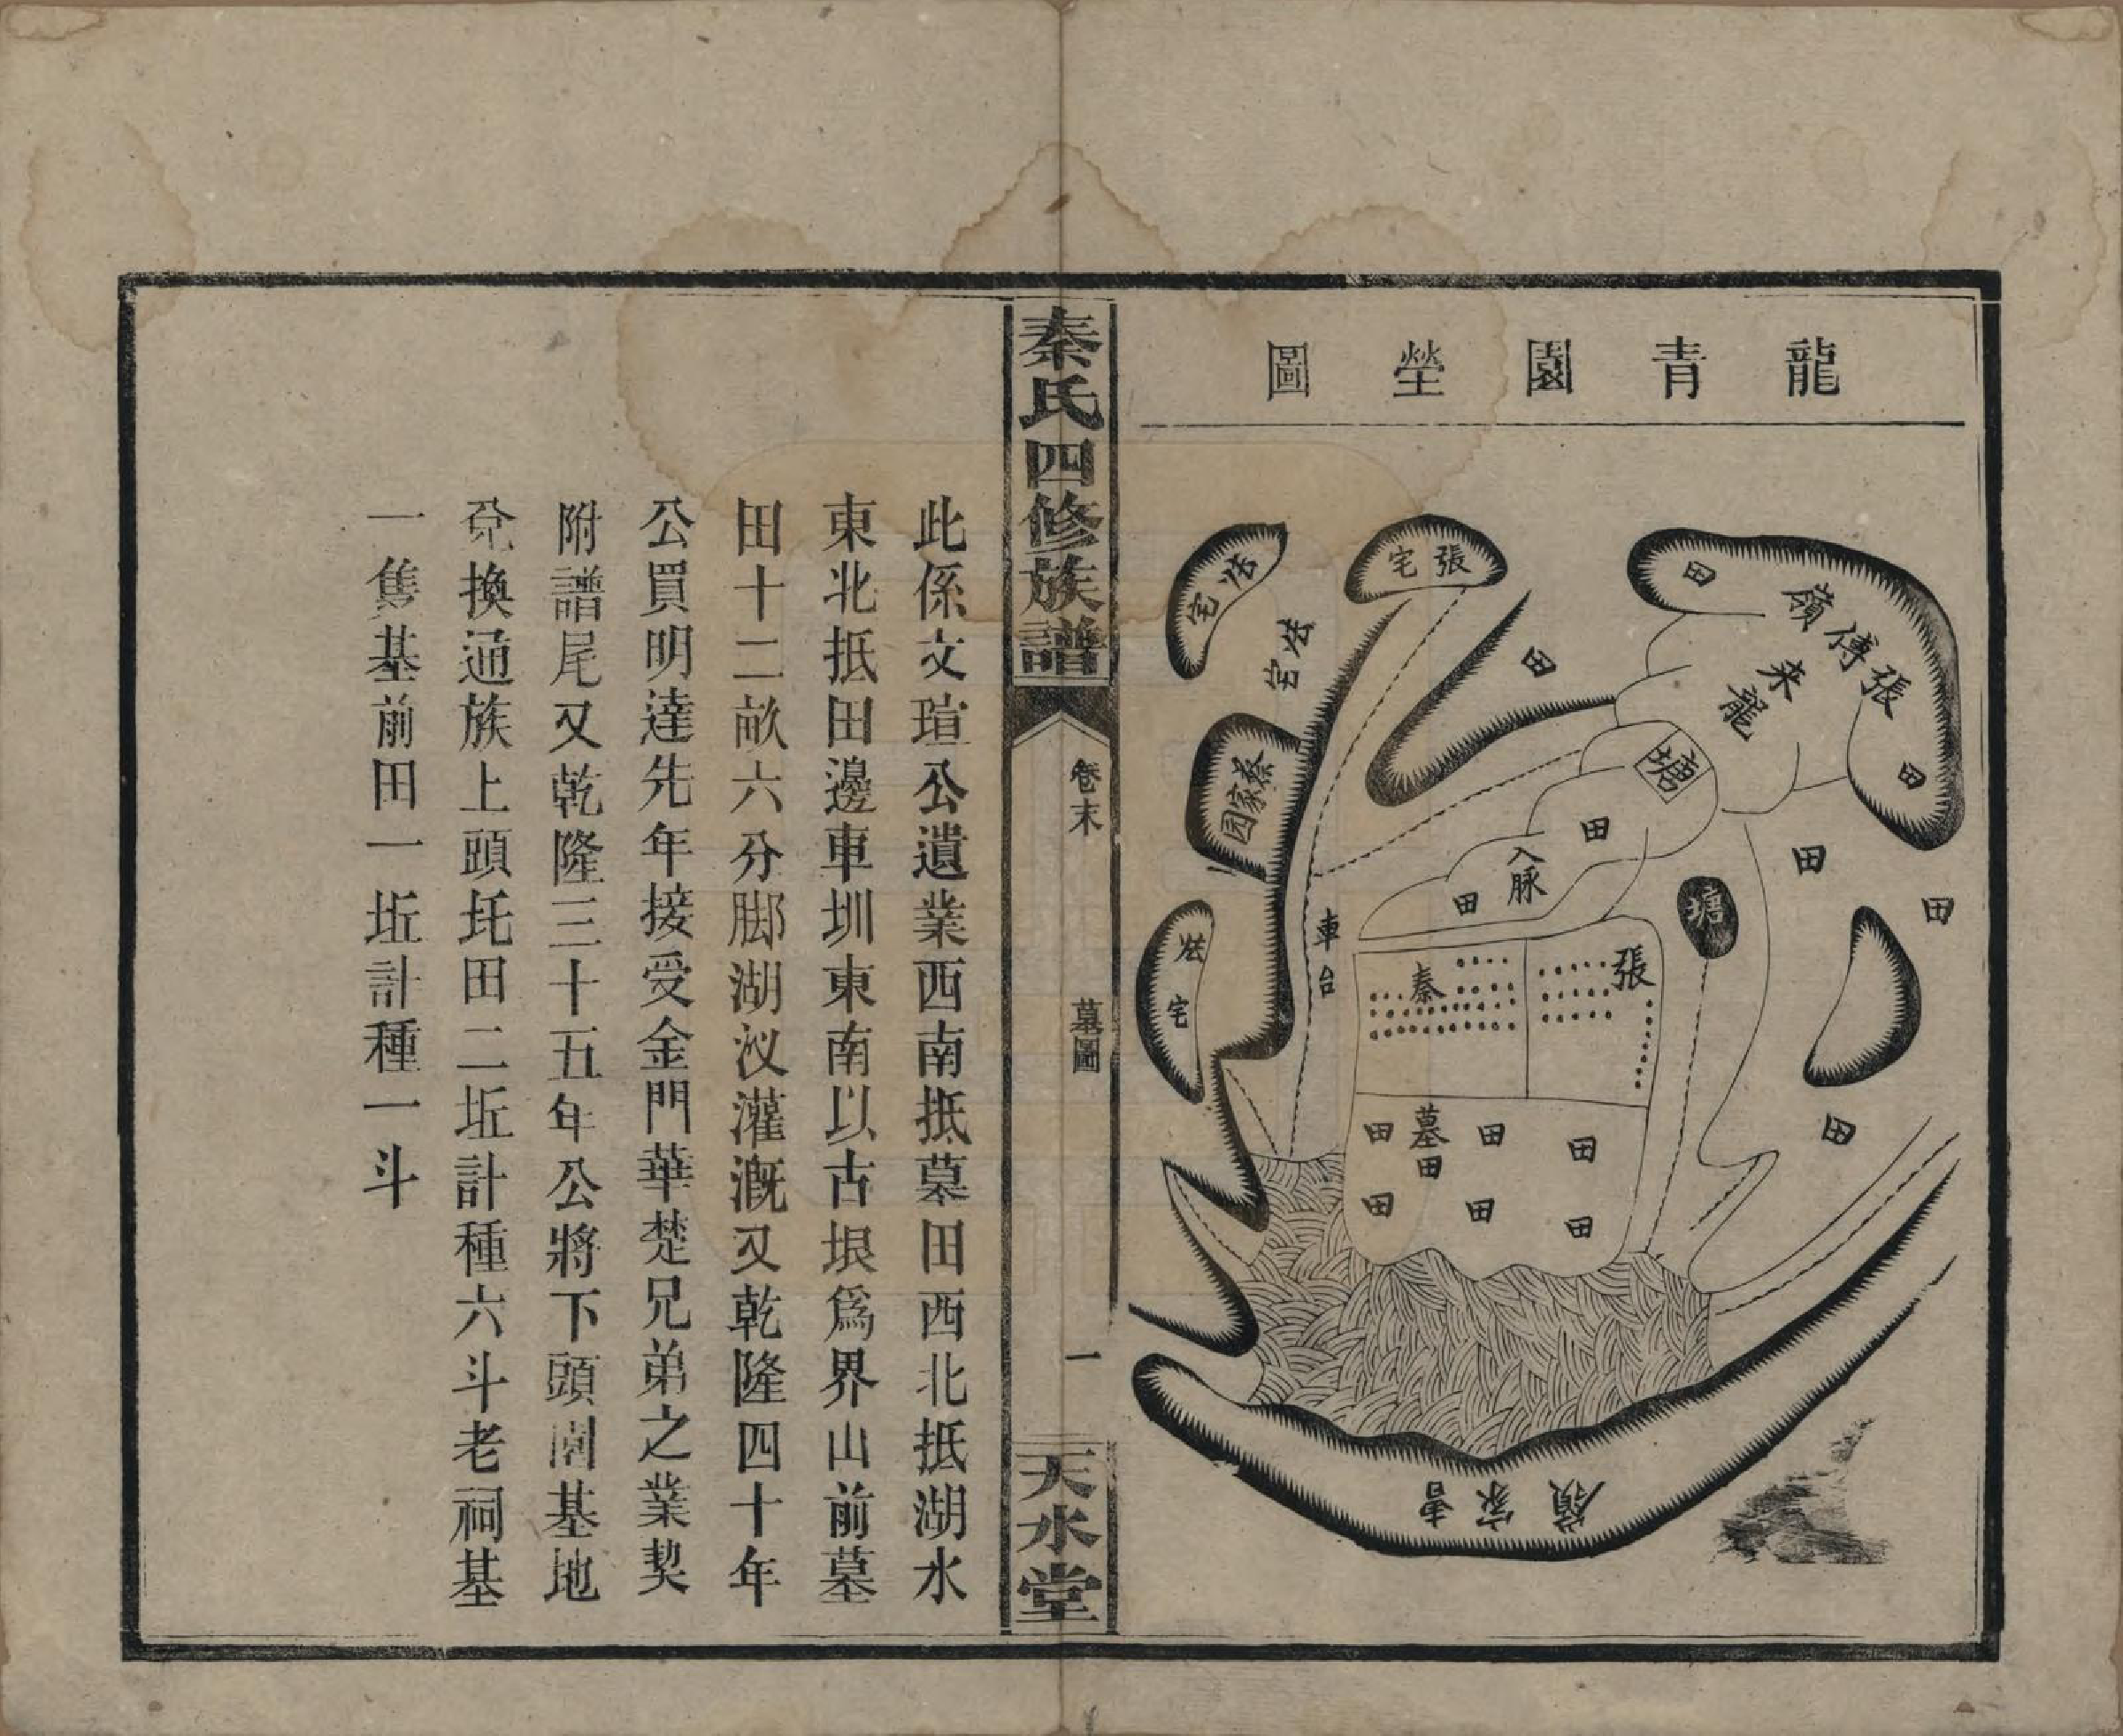 龍青園塋圖
張傳嶺
来龍
田
田
田
田
田
田
張宅
塘
田
入脉
田
塘
車台
蔡家园
宅
宅
張
秦
墓田
田
田
田
田
田
田
曹家嶺
秦氏四修族譜
卷末
墓圖
一
天水堂
此係文瑄公遺業西南抵墓田西北抵湖水
東北抵田邊車圳東南以古垠爲界山前墓
田十二畝六分腳湖汊灌溉又乾隆四十年
公買明達先年接受金門華楚兄弟之業契
附譜尾又乾隆三十五年公將下頭園基地
兌換通族上頭圫田二坵計種六斗老祠基
一隻基前田一坵計種一斗